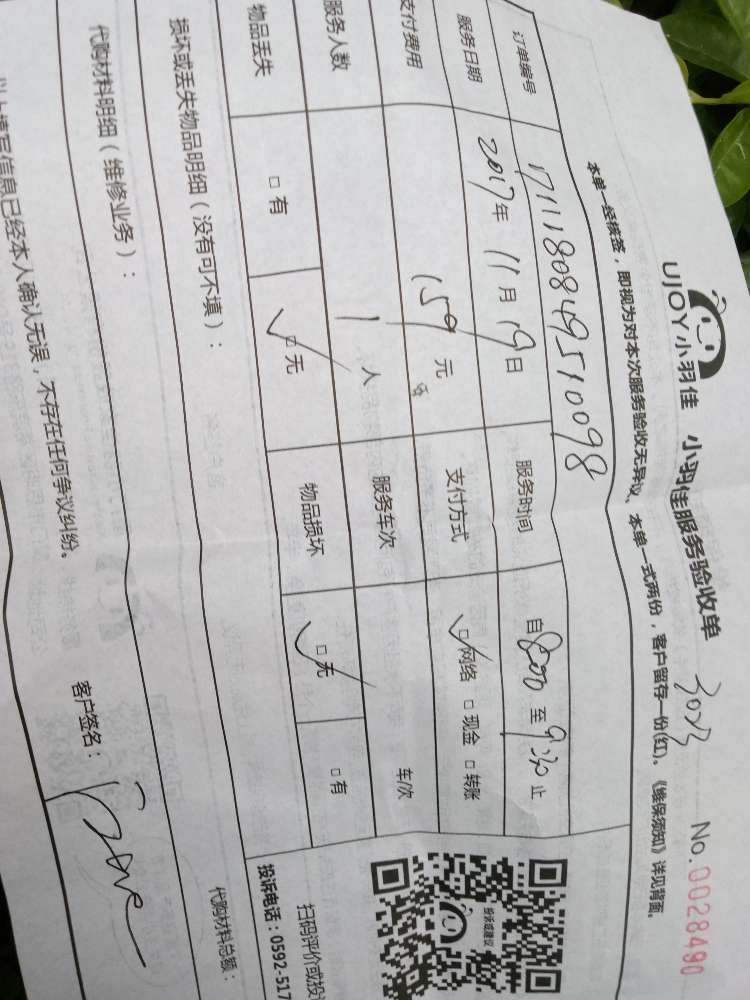 UJOY小羽佳 小羽佳服务验收单 3023 No.0028490
本单一经核签，即视为对本次服务验收无异议、本单一式两份，客户留存一份(红)。《维保须知》详见背面。
订单编号 1711180849510098
服务日期 2017年 11月 19日 服务时间 自 8:00 至 9:30 止
支付费用 159 元 支付方式 ☑网络 □现金 □转账
服务人数 1 人 服务车次 车/次
物品丢失 □有 ☑无 物品损坏 ☑无 □有
损坏或丢失物品明细（没有可不填）：
代购材料明细（维修业务）： 代购材料总额：
以上填写信息已经本人确认无误，不存在任何争议纠纷。 客户签名：
投诉或建议
扫码评价或投
投诉电话：0592-517